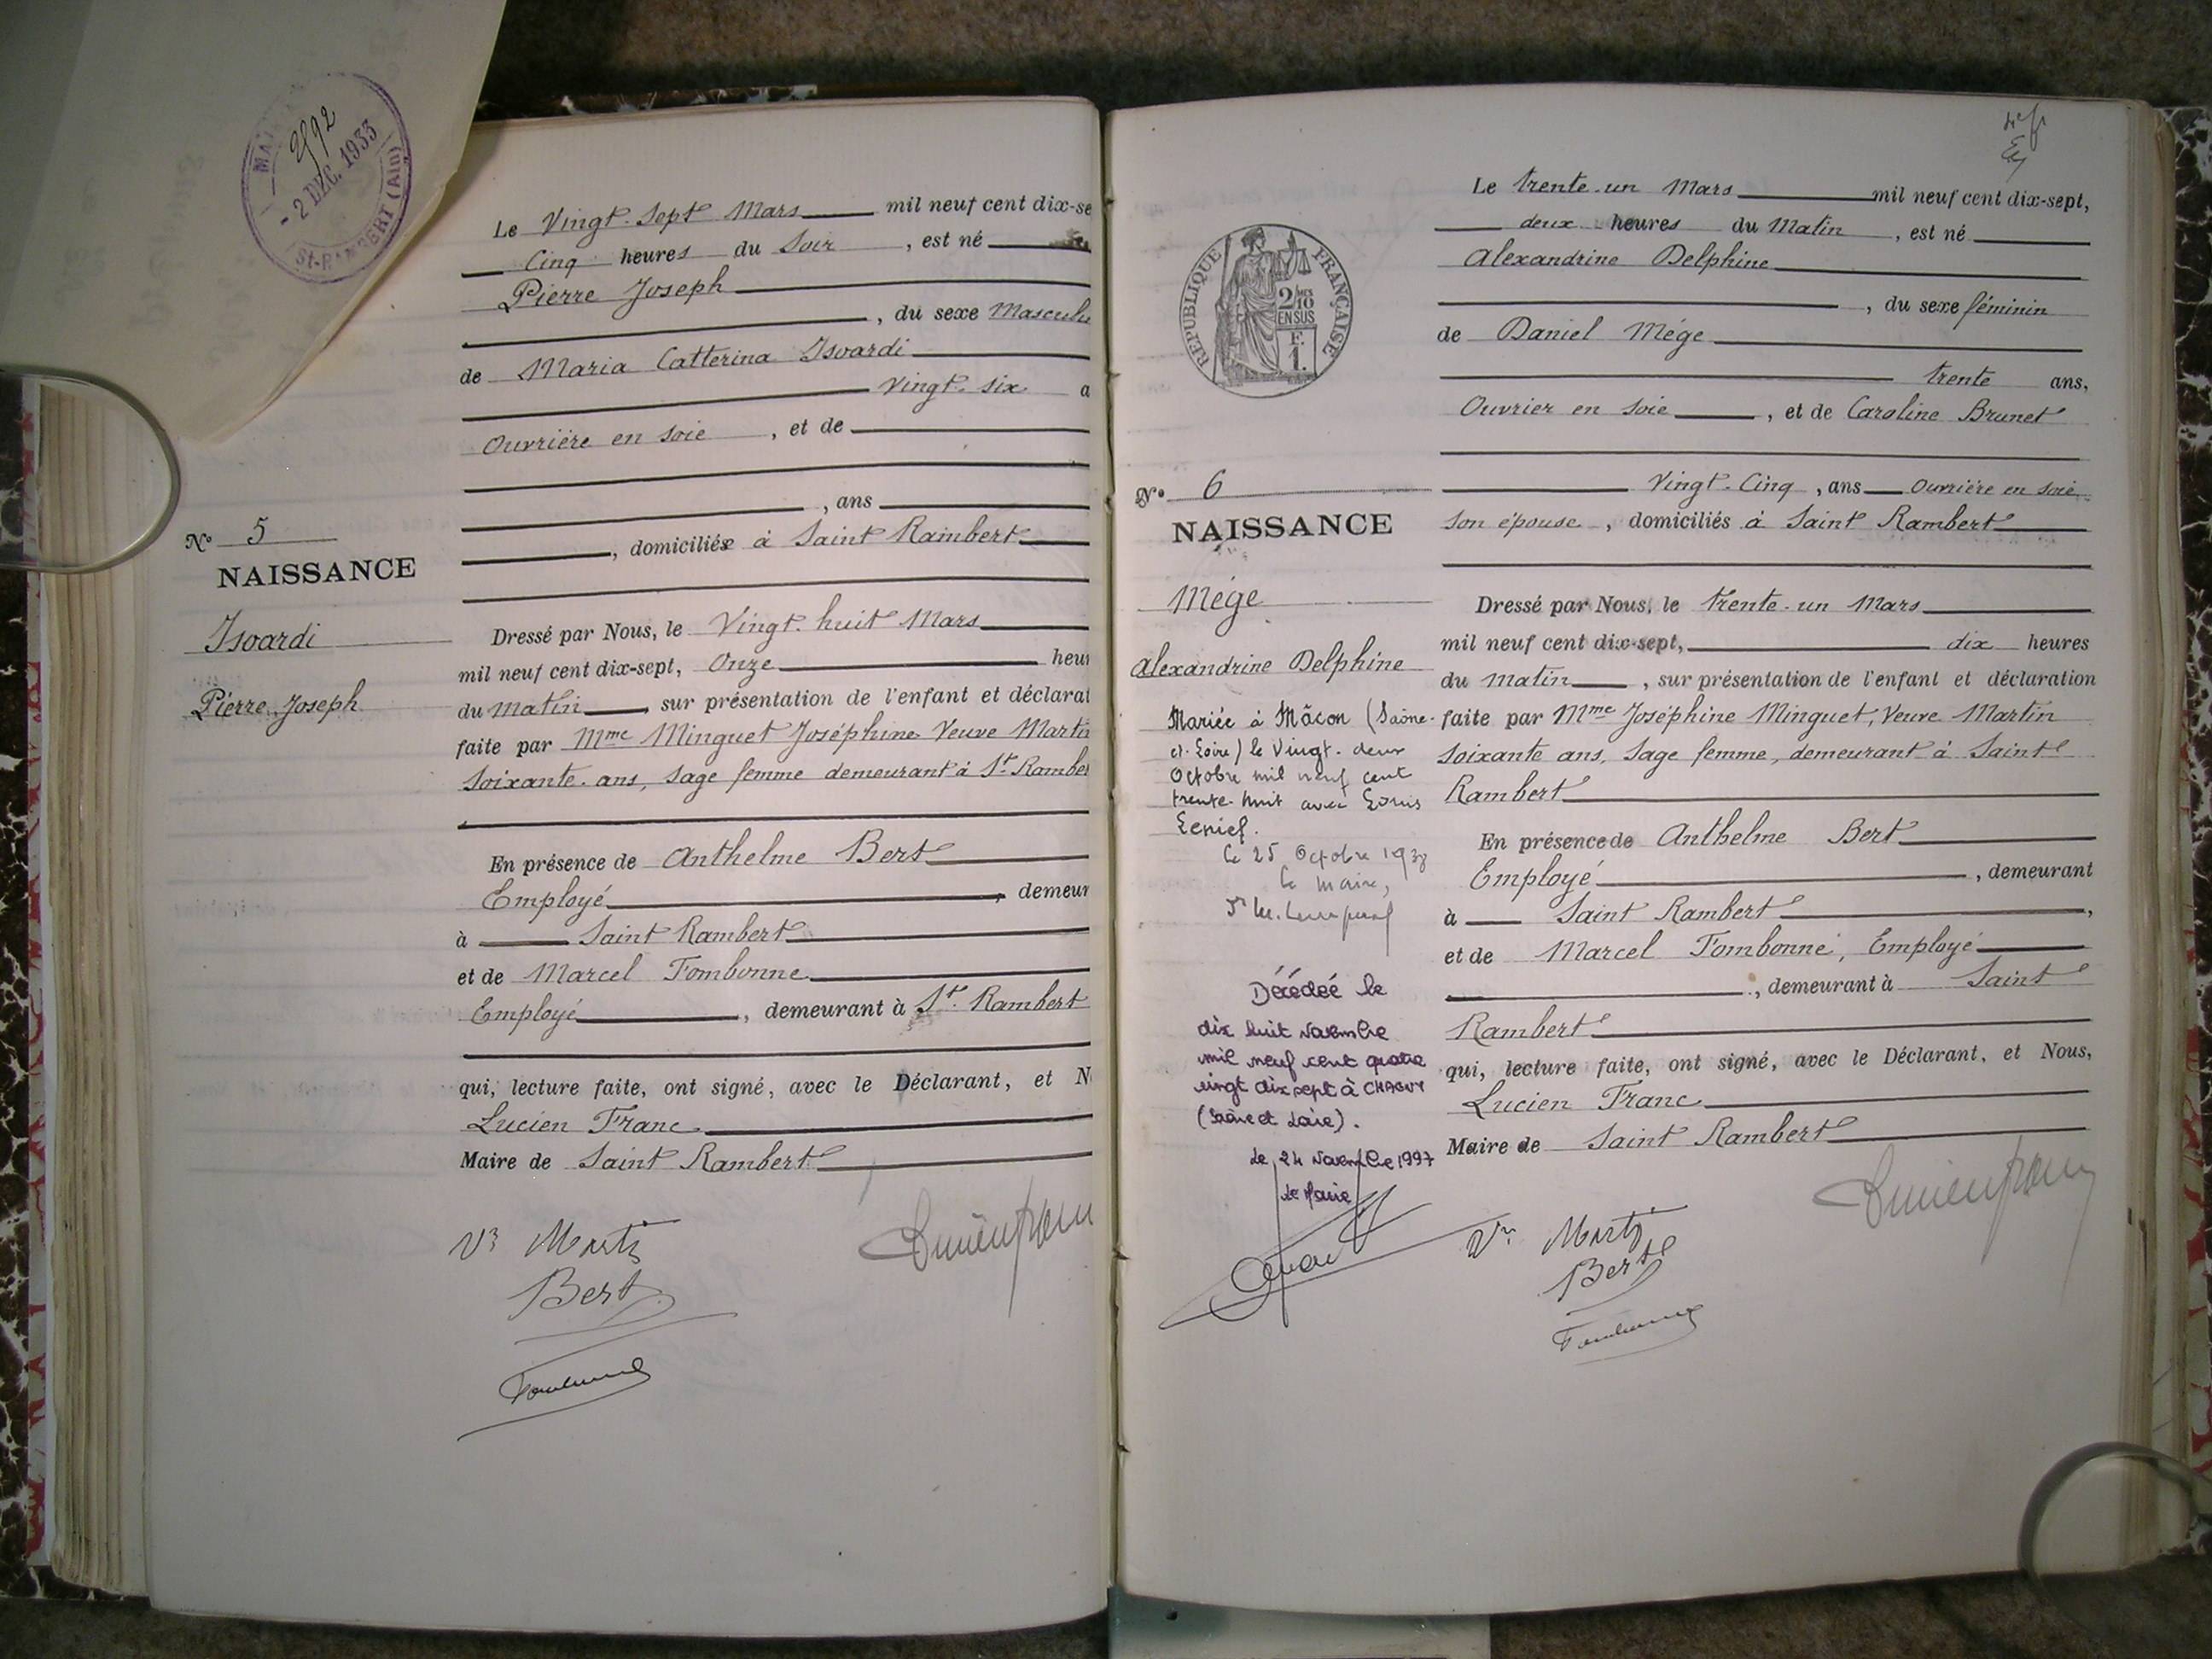 MAI
2592
- 2 DEC. 1933
St-R MBERT (Ain)
Le Vingt-Sept Mars mil neuf cent dix-se
Cinq heures du Soir , est né
Pierre Joseph
, du sexe Masculi
de Maria Catterina Isoardi
Vingt-six a
Ouvrière en soie , et de
, ans
, domiciliée à Saint Rambert
N° 5
NAISSANCE
Isoardi
Pierre Joseph
Dressé par Nous, le Vingt-huit Mars
mil neuf cent dix-sept, Onze heur
du Matin , sur présentation de l'enfant et déclarat
faite par Mme Minguet Joséphine Veuve Martin
Soixante-ans, Sage femme demeurant à St Ramber
En présence de Anthelme Bert
Employé , demeur
à Saint Rambert
et de Marcel Tombonne
Employé , demeurant à St. Rambert
qui, lecture faite, ont signé, avec le Déclarant, et N
Lucien Franc
Maire de Saint Rambert
Vve Martin
Bert
Tombonne
Lucien Franc
RÉPUBLIQUE FRANÇAISE
2/10 MES
EN SUS
F.
1.
Le trente-un Mars mil neuf cent dix-sept,
deux heures du Matin , est né
Alexandrine Delphine
, du sexe féminin
de Daniel Mége
trente ans,
Ouvrier en soie , et de Caroline Brunet
Vingt-Cinq , ans Ouvrière en soie
son épouse , domiciliés à Saint Rambert
N° 6
NAISSANCE
Mége
Alexandrine Delphine
Mariée à Mâcon (Saône-
et-Loire) le Vingt-deux
Octobre mil neuf cent
trente-huit avec Louis
Le 25 Octobre 1938
Le Maire,
Décédée le
dix huit novembre
mil neuf cent quatre
vingt dix sept à CHAGNY
(Saône et Loire).
Le 24 Novembre 1997
Le Maire
Dressé par Nous, le trente-un Mars
mil neuf cent dix-sept, dix heures
du Matin , sur présentation de l'enfant et déclaration
faite par Mme Joséphine Minguet, Veuve Martin
Soixante ans, Sage femme, demeurant à Saint
Rambert
En présence de Anthelme Bert
Employé , demeurant
à Saint Rambert ,
et de Marcel Tombonne, Employé
, demeurant à Saint
Rambert
qui, lecture faite, ont signé, avec le Déclarant, et Nous,
Lucien Franc
Maire de Saint Rambert
Vve Martin
Bert
Tombonne
Lucien Franc